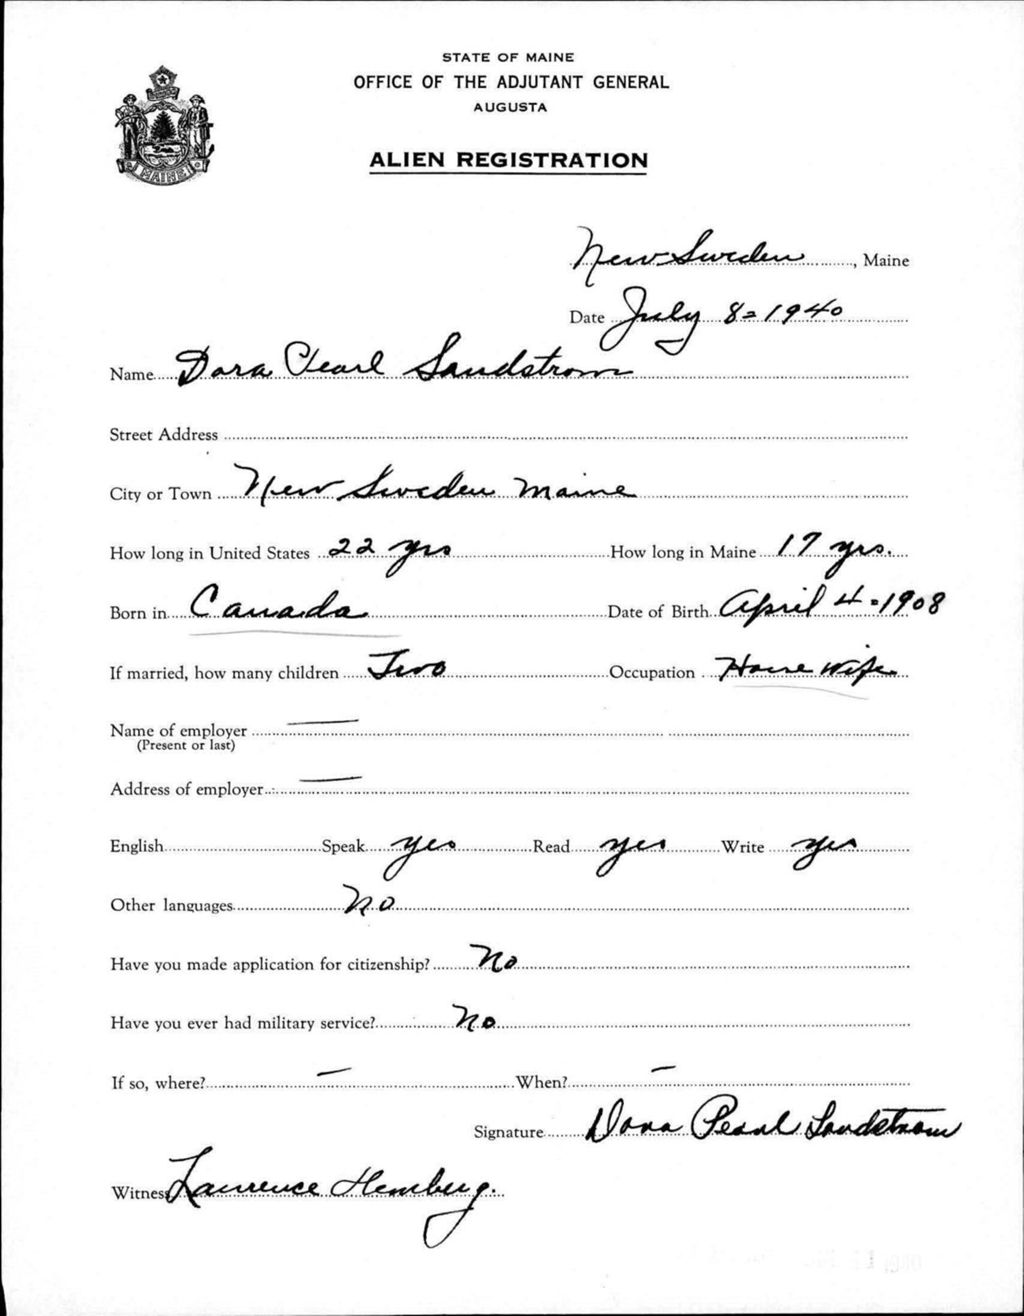 STATE OF MAINE
OFFICE OF THE ADJUTANT GENERAL
AUGUSTA
ALIEN REGISTRATION
MAINE
New Sweden, Maine
Date July 8=1940
Name Dora Pearl Sandstrom
Street Address
City or Town New Sweden Maine
How long in United States 22 yrs How long in Maine 17 yrs.
Born in Canada Date of Birth April 4=1908
If married, how many children Two Occupation House Wife
Name of employer
(Present or last)
Address of employer
English Speak yes Read yes Write yes
Other languages No
Have you made application for citizenship? No
Have you ever had military service? No
If so, where? — When? —
Signature Dora Pearl Sandstrom
Witness Lawrence Hemberg.